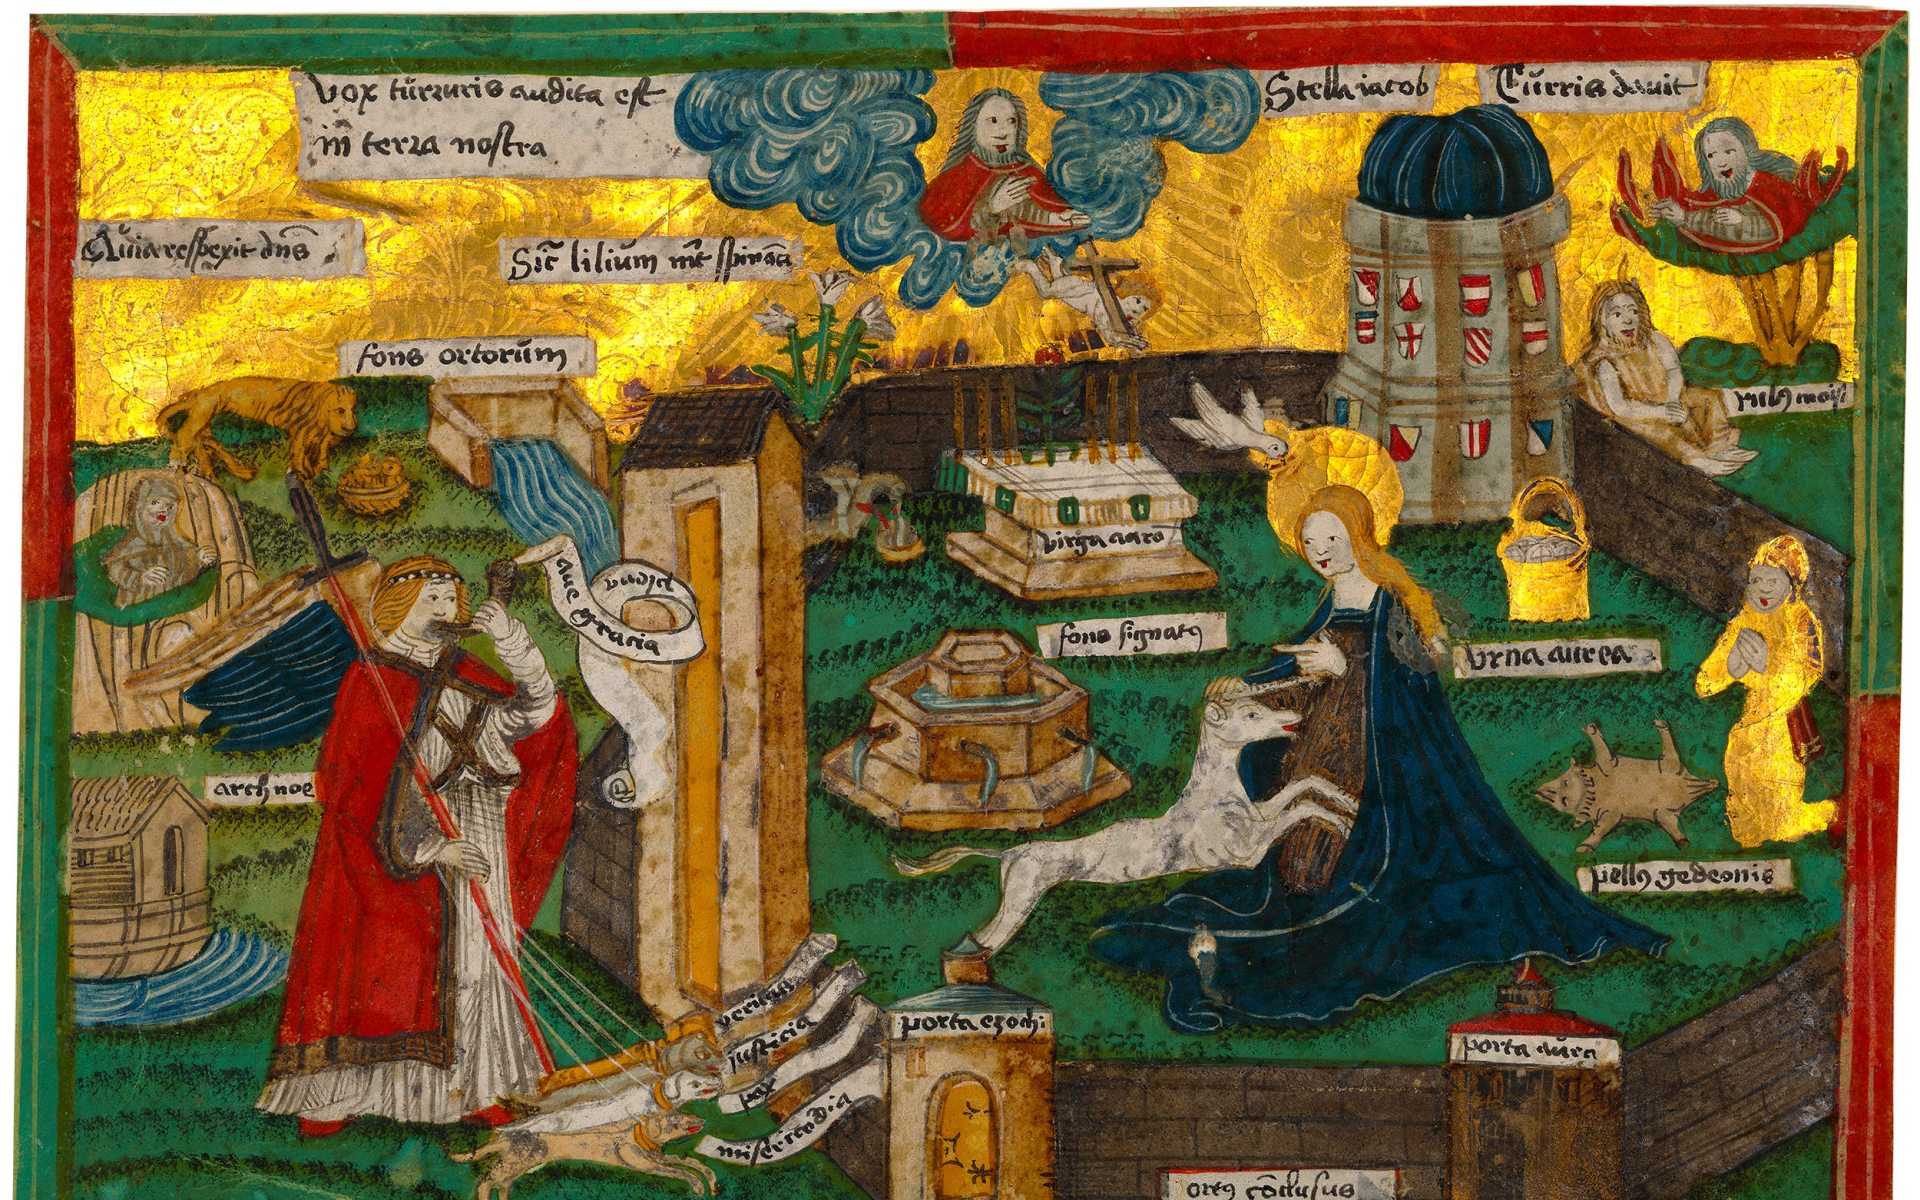 Vox turruris audita est
in terra nostra
Stella iacob
Turris dauit
Quia respexit dns
Sic lilium int spinas
fons ortorum
rub9 moisi
virga aaro
aue gracia
fons signat9
vrna aurea
arch noe
pell9 gedeonis
veritas
justicia
pax
misericordia
porta ezechi
porta aurea
ort9 coclusus